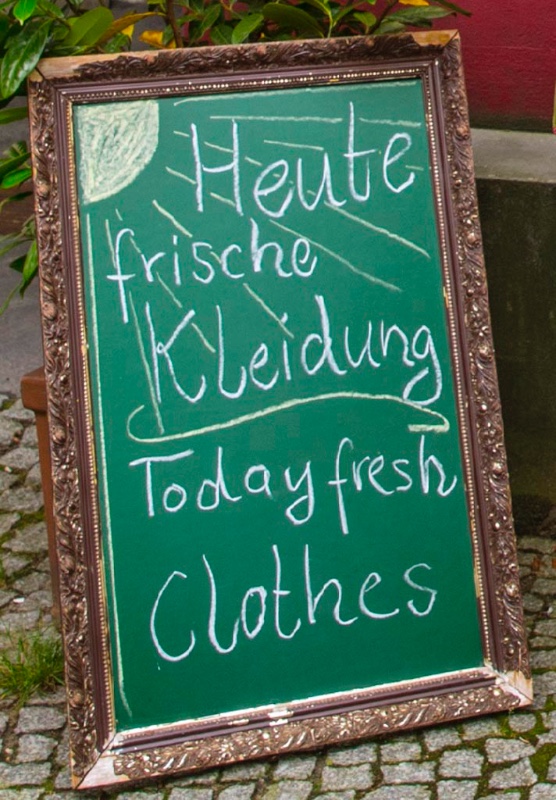 Heute
frische
Kleidung
Today fresh
Clothes